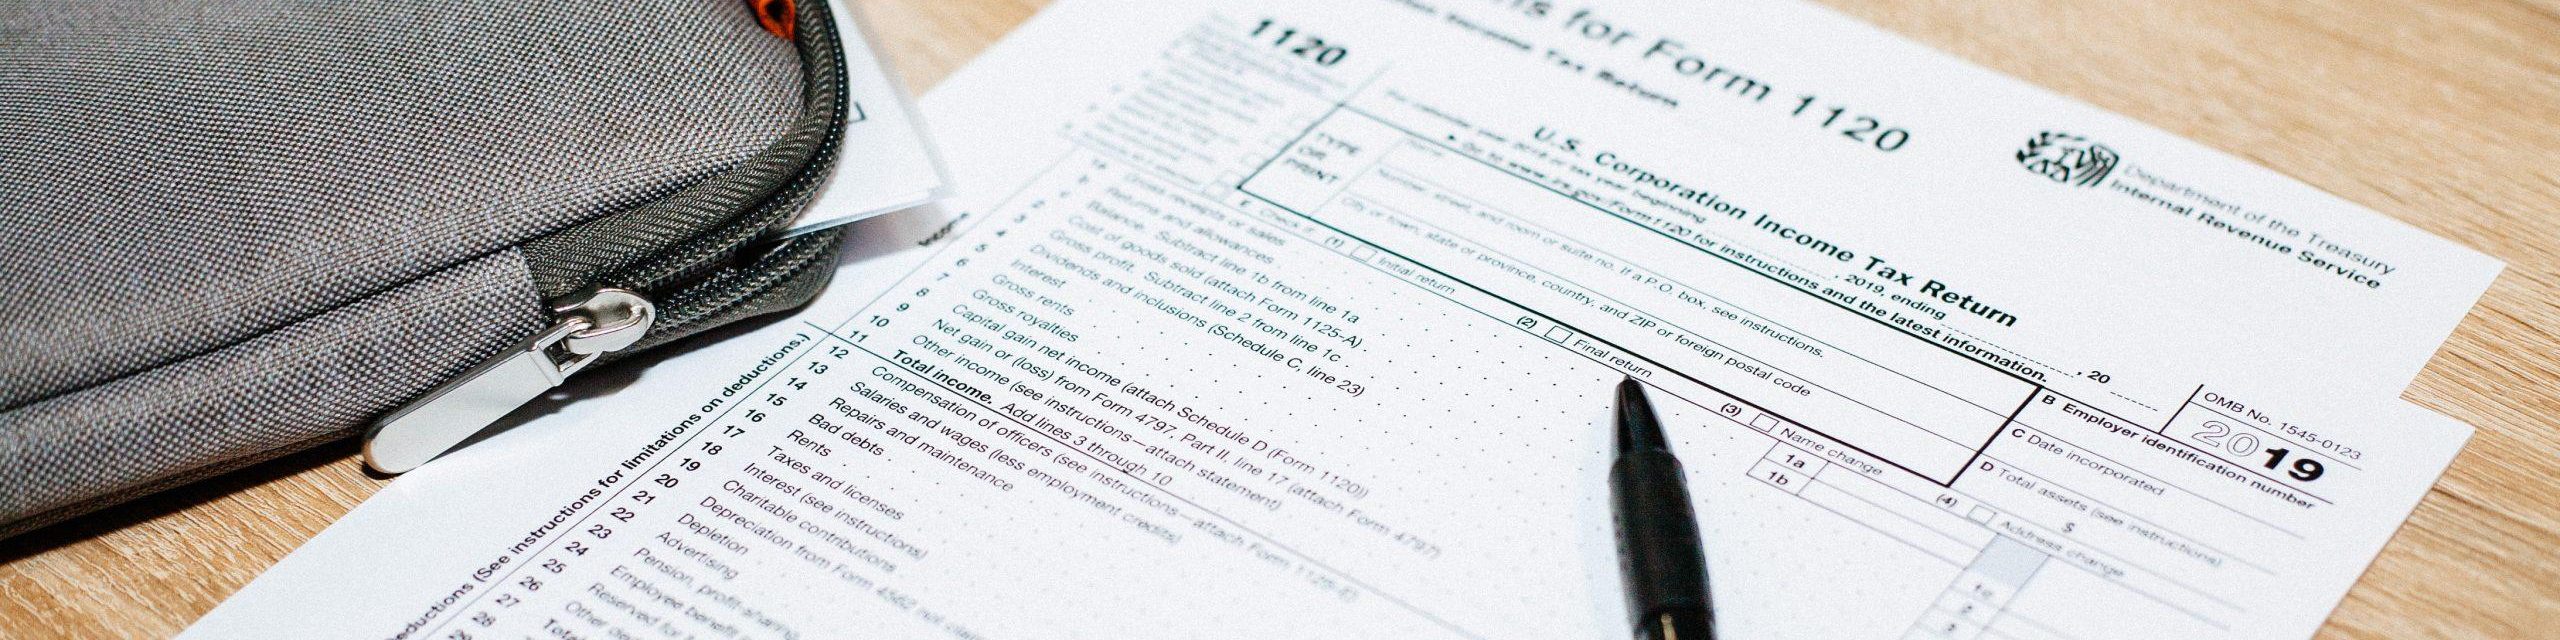 for Form 1120
Income Tax Return
Department of the Treasury
Internal Revenue Service
1120
U.S. Corporation Income Tax Return
, 2019, ending
, 20
Go to www.irs.gov/Form1120 for instructions and the latest information.
OMB No. 1545-0123
2019
TYPE
OR
PRINT
Number, street, and room or suite no. If a P.O. box, see instructions.
City or town, state or province, country, and ZIP or foreign postal code
B Employer identification number
C Date incorporated
D Total assets (see instructions)
$
E Check if: (1) Initial return (2) Final return (3) Name change (4) Address change
Gross receipts or sales
1a
Returns and allowances
1b
Balance. Subtract line 1b from line 1a
1c
2 Cost of goods sold (attach Form 1125-A)
2
3 Gross profit. Subtract line 2 from line 1c
3
4 Dividends and inclusions (Schedule C, line 23)
5 Interest
6 Gross rents
7 Gross royalties
8 Capital gain net income (attach Schedule D (Form 1120))
9 Net gain or (loss) from Form 4797, Part II, line 17 (attach Form 4797)
10 Other income (see instructions—attach statement)
11 Total income. Add lines 3 through 10
12 Compensation of officers (see instructions—attach Form 1125-E)
13 Salaries and wages (less employment credits)
14 Repairs and maintenance
15 Bad debts
16 Rents
17 Taxes and licenses
18 Interest (see instructions)
19 Charitable contributions
20 Depreciation from Form 4562 not
21 Depletion
22 Advertising
23 Pension, profit-sharing
24 Employee benefit
25 Reserved for
26 Other
27
28
(See instructions for limitations on deductions.)